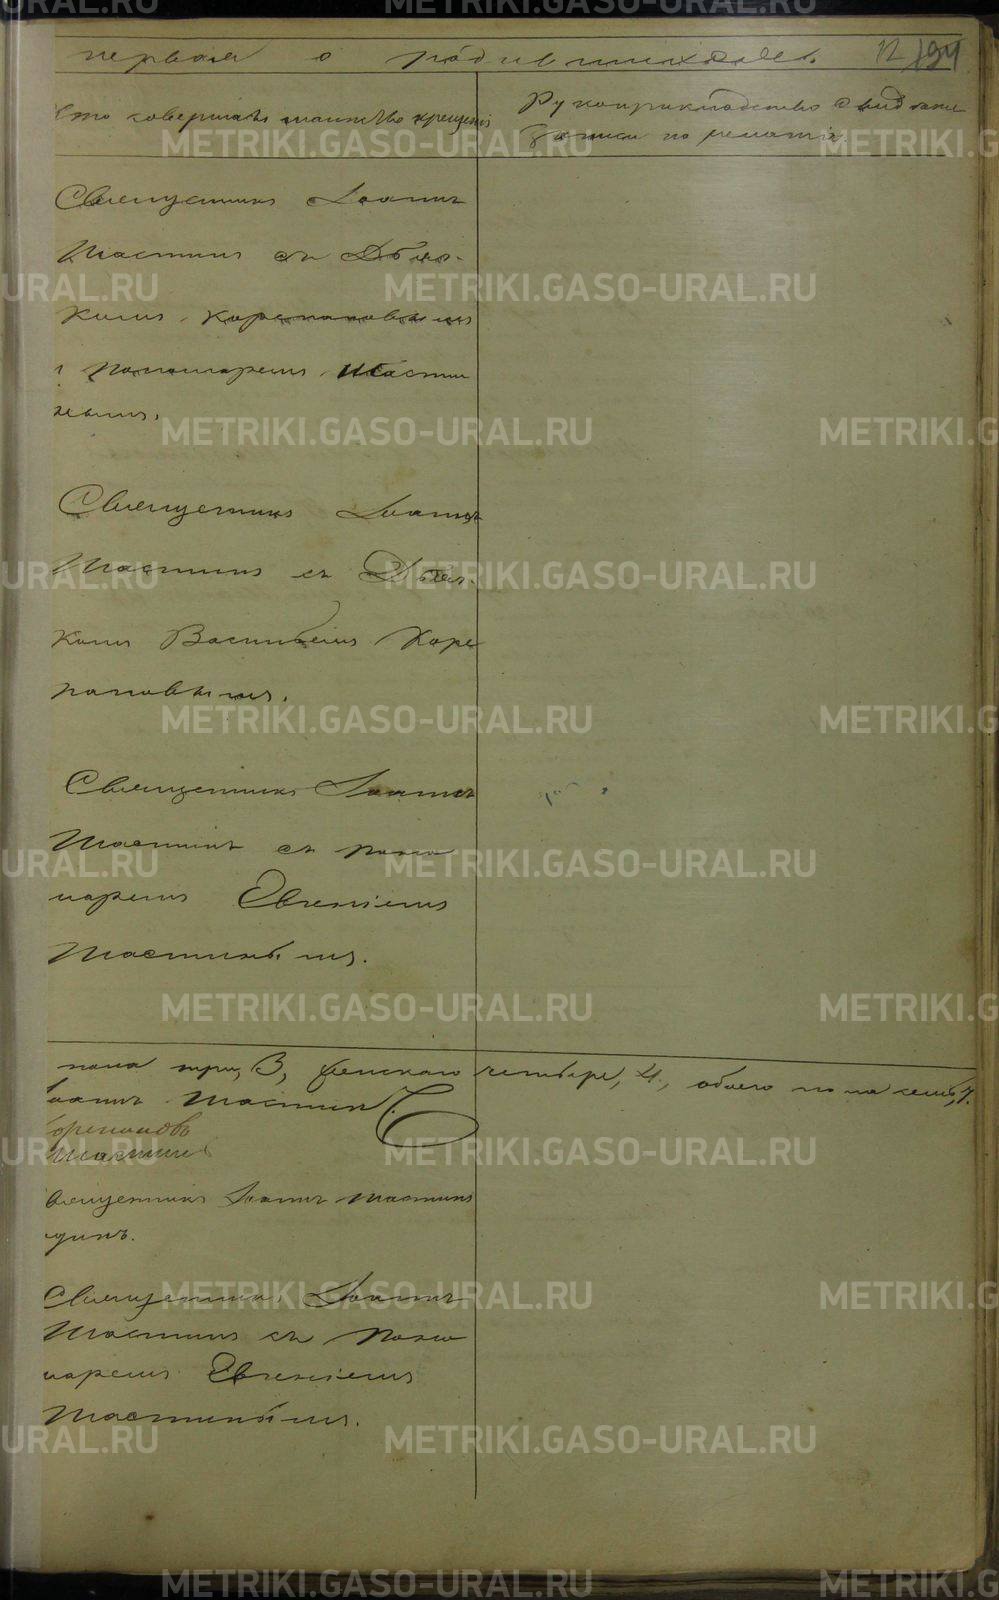 первая о родившихся.
12 194
Кто совершалъ таинство крещенія
Рукоприкладство свидѣтелей
записи по желанію
Священникъ Іоаннъ
Шастинъ съ Дьяч-
комъ Корепановымъ
и пономаремъ Шасти
нымъ.
Священникъ Іоаннъ
Шастинъ съ Дьяч-
комъ Васильемъ Коре
пановымъ.
Священникъ Іоаннъ
Шастинъ съ поно
маремъ Евгеніемъ
Шастинымъ.
пола три, 3, женскаго четыре, 4, обоего пола семь, 7.
Іоаннъ Шастинъ
Корепановъ
Шастинъ
Священникъ Іоаннъ Шастинъ
одинъ.
Священникъ Іоаннъ
Шастинъ съ поно
маремъ Евгеніемъ
Шастинымъ.
METRIKI.GASO-URAL.RU